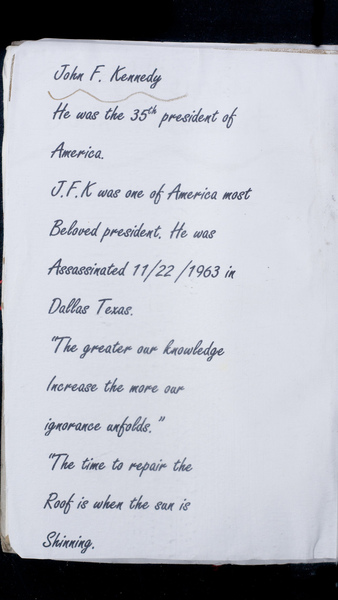 John F. Kennedy
He was the 35th president of
America.
J.F.K was one of America most
Beloved president. He was
Assassinated 11/22 /1963 in
Dallas Texas.
"The greater our knowledge
Increase the more our
ignorance unfolds."
"The time to repair the
Roof is when the sun is
Shinning.